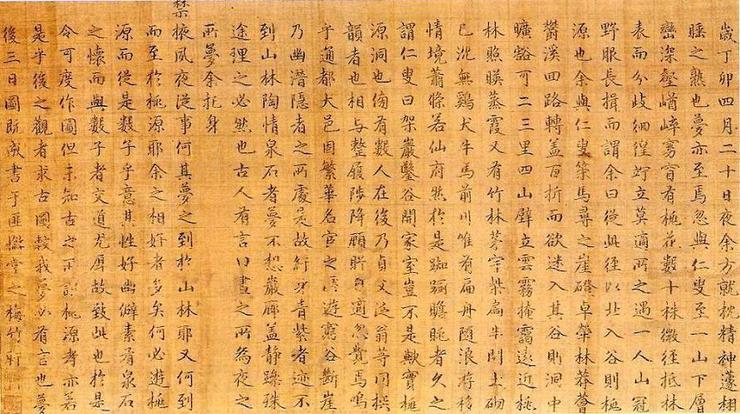 歲丁卯四月二十日夜余方就枕精神蘧栩
睡之熟也夢亦至焉忽與仁叟至一山下層
巒深壑崷崪窈窅有桃花數十株微徑抵林
表而分歧徊徨竚立莫適所之遇一人山冠
野服長揖而謂余曰從此徑以北入谷則桃
源也余與仁叟策馬尋之崖磴卓犖林莽薈
鬱溪回路轉蓋百折而欲迷入其谷則洞中
曠豁可二三里四山壁立雲霧掩靄遠近桃
林照暎蒸霞又有竹林茅宇柴扃半開土砌
已沈無鷄犬牛馬前川唯有扁舟隨浪游移
情境蕭條若仙府然於是踟躕瞻眺者久之
謂仁叟曰架巖鑿谷開家室豈不是歟實桃
源洞也傍有數人在後乃貞父泛翁等同撰
韻者也相與整履陟降顧眄自適忽覺焉嗚
乎通都大邑固繁華名宦之所遊窮谷斷崖
乃幽潛隱者之所處是故紆身青紫者迹不
到山林陶情泉石者夢不想巖廊蓋靜躁殊
途理之必然也古人有言曰晝之所爲夜之
所夢余托身
禁掖夙夜從事何其夢之到於山林耶又何到
而至於桃源耶余之相好者多矣何必遊桃
源而從是數子乎意其性好幽僻素有泉石
之懷而與數子者交道尤厚故致此也於是
令可度作圖但未知古之所謂桃源者亦若
是乎後之觀者求古圖較我夢必有言也夢
後三日圖旣成書于匪懈堂之梅竹軒